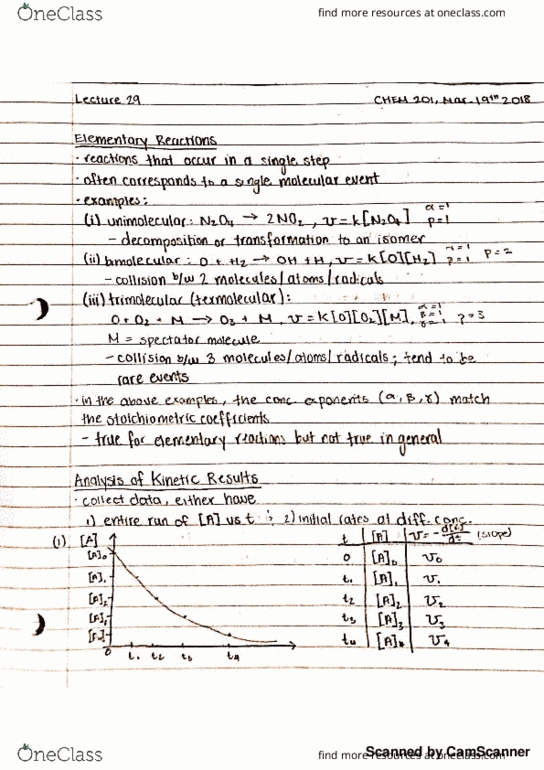 OneClass
find more resources at oneclass.com
Lecture 29
CHEM 201, Mar. 19th 2018
Elementary Reactions
· reactions that occur in a single step
· often corresponds to a single molecular event
· examples:
(i) unimolecular: N₂O₄ → 2NO₂, v = k[N₂O₄] α=1 p=1
– decomposition or transformation to an isomer
(ii) bimolecular: O + H₂ → OH + H, v = k[O][H₂] α=1 β=1 p=2
– collision b/w 2 molecules/atoms/radicals
(iii) trimolecular (termolecular):
O + O₂ + M → O₃ + M, v = k[O][O₂][M], α=1 β=1 γ=1, p=3
M = spectator molecule
– collision b/w 3 molecules/atoms/radicals; tend to be
rare events
· in the above examples, the conc. exponents (α, β, γ) match
the stoichiometric coefficients
– true for elementary reactions but not true in general
Analysis of Kinetic Results
· collect data, either have
1) entire run of [A] vs t ; 2) initial rates at diff. conc.
(1) [A]
[A]₀
[A]₁
[A]₂
[A]₃
0 t₁ t₂ t₃ t₄
t [A] v = - d[A]/dt (slope)
0 [A]₀ v₀
t₁ [A]₁ v₁
t₂ [A]₂ v₂
t₃ [A]₃ v₃
t₄ [A]₄ v₄
OneClass
find more resources at oneclass.com
Scanned by CamScanner